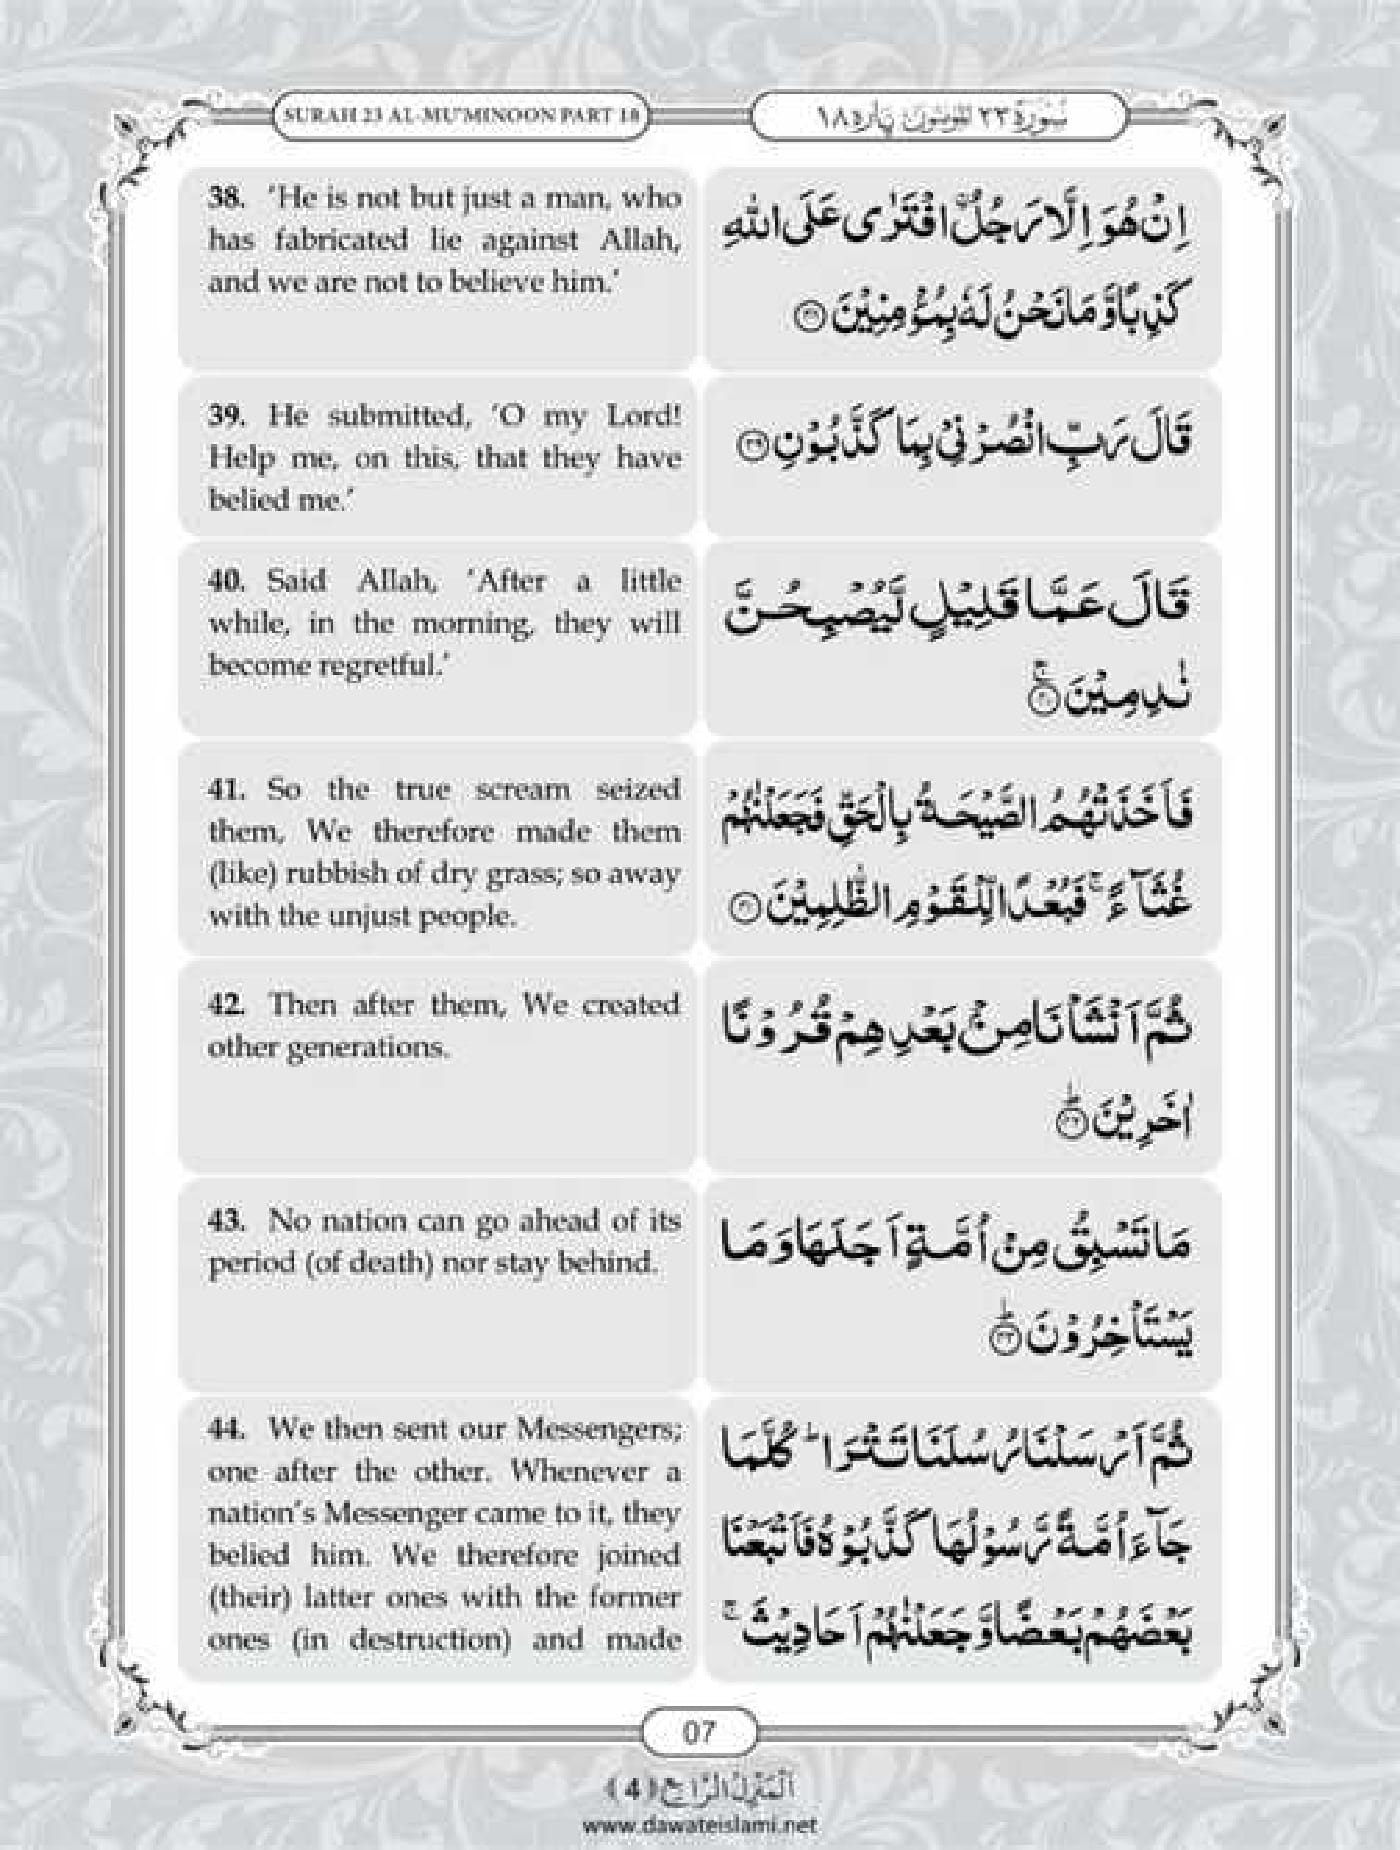 SURAH 23 AL-MU'MINOON PART 18
سُوْرَةُ ٢٣ الْمُؤْمِنُوْن پاره ١٨
38. ‘He is not but just a man, who
has fabricated lie against Allah,
and we are not to believe him.’
اِنْ هُوَ اِلَّا رَجُلٌ افْتَرٰى عَلَى اللّٰهِ
كَذِبًا وَّ مَا نَحْنُ لَهٗ بِمُؤْمِنِیْنَ ﴿۳۸﴾
39. He submitted, ‘O my Lord!
Help me, on this, that they have
belied me.’
قَالَ رَبِّ انْصُرْنِیْ بِمَا كَذَّبُوْنِ ﴿۳۹﴾
40. Said Allah, ‘After a little
while, in the morning, they will
become regretful.’
قَالَ عَمَّا قَلِیْلٍ لَّیُصْبِحُنَّ
نٰدِمِیْنَ ﴿۴۰﴾ۚ
41. So the true scream seized
them, We therefore made them
(like) rubbish of dry grass; so away
with the unjust people.
فَاَخَذَتْهُمُ الصَّیْحَةُ بِالْحَقِّ فَجَعَلْنٰهُمْ
غُثَآءً ۚ فَبُعْدًا لِّلْقَوْمِ الظّٰلِمِیْنَ ﴿۴۱﴾
42. Then after them, We created
other generations.
ثُمَّ اَنْشَاْنَا مِنْۢ بَعْدِهِمْ قُرُوْنًا
اٰخَرِیْنَ ﴿۴۲﴾ؕ
43. No nation can go ahead of its
period (of death) nor stay behind.
مَا تَسْبِقُ مِنْ اُمَّةٍ اَجَلَهَا وَ مَا
یَسْتَاْخِرُوْنَ ﴿۴۳﴾ؕ
44. We then sent our Messengers;
one after the other. Whenever a
nation’s Messenger came to it, they
belied him. We therefore joined
(their) latter ones with the former
ones (in destruction) and made
ثُمَّ اَرْسَلْنَا رُسُلَنَا تَتْرَا ؕ كُلَّمَا
جَآءَ اُمَّةً رَّسُوْلُهَا كَذَّبُوْهُ فَاَتْبَعْنَا
بَعْضَهُمْ بَعْضًا وَّ جَعَلْنٰهُمْ اَحَادِیْثَ ۚ
07
اَلْمَنْزِلُ الرَّابِعُ (4)
www.dawateislami.net